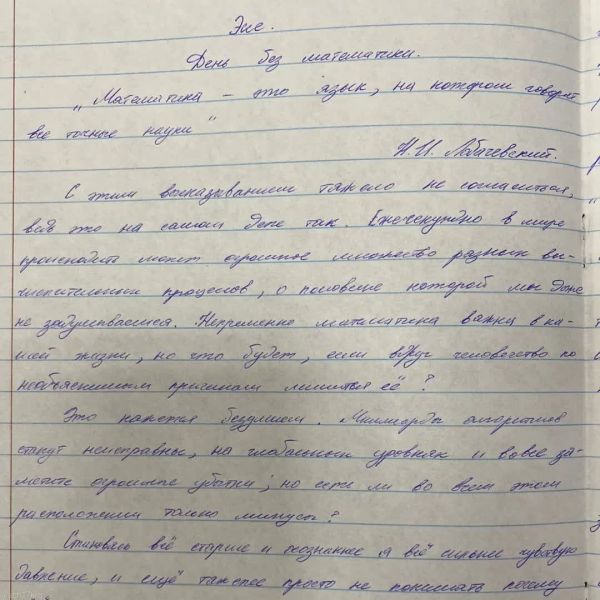 Эссе.
День без математики.
„Математика – это язык, на котором говорят
все точные науки"
Н.И. Лобачевский.
С этим высказыванием тяжело не согласиться,
ведь это на самом деле так. Ежесекундно в мире
происходить может огромное множество разных вы-
числительных процессов, о половине которой мы даже
не задумываемся. Непременно математика важна в на-
шей жизни, но что будет, если вдруг человечество по
необъяснимым причинам лишиться её?
Это кажется безумием. Миллиарды алгоритмов
станут неисправны, на глобальных уровнях и вовсе за-
метите огромные убытки; но есть ли во всем этом
расположении только минусы?
Становясь всё старше и осознаннее я всё сильнее чувствую
давление, и ещё тяжелее просто не понимать почему